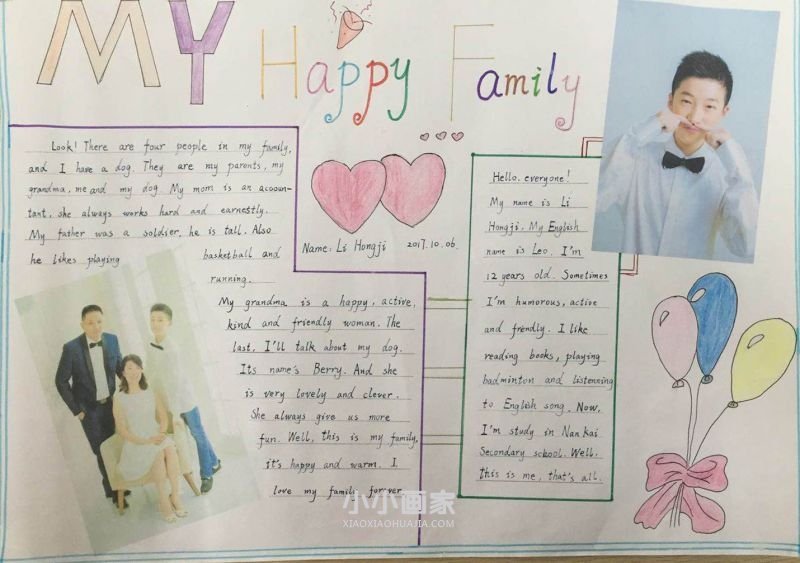 MY Happy Family
Look! There are four people in my family,
and I have a dog. They are my parents, my
grandma, me and my dog. My mom is an accoun-
tant, she always works hard and earnestly.
My father was a soldier, he is tall. Also
he likes playing basketball and
running.
My grandma is a happy, active,
kind and friendly woman. The
last, I'll talk about my dog.
Its name's Berry. And she
is very lovely and clever.
She always give us more
fun. Well, this is my family,
it's happy and warm. I
love my family forever
Name: Li Hongji 2017.10.06.
Hello, everyone!
My name is Li
Hongji. My English
name is Leo. I'm
12 years old. Sometimes
I'm humorous, active
and frendly. I like
reading books, playing
badminton and listenning
to English song. Now,
I'm study in Nan Kai
Secondary school. Well,
this is me, that's all.
小小画家
XIAOXIAOHUAJIA.COM